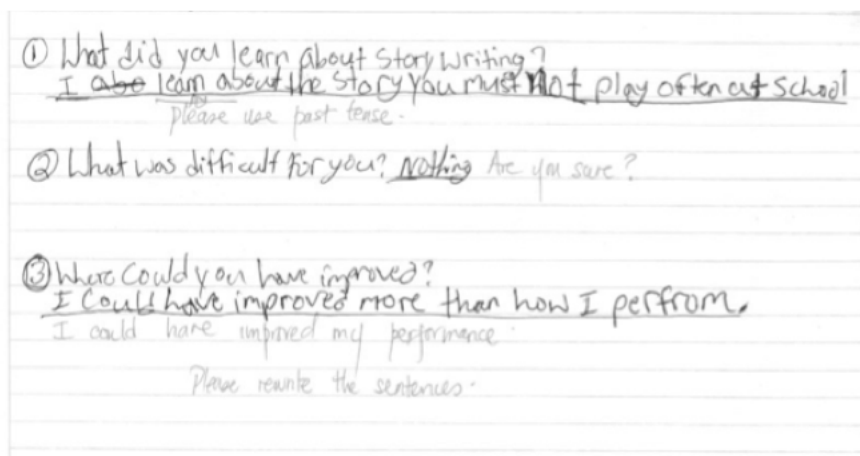 ① What did you learn about Story Writing?
I learn about the Story you must not play often at School
Please use past tense.
② What was difficult for you? Nothing Are you sure?
③ Where Could you have improved?
I Could have improved more than how I perfrom.
I could have improved my performance.
Please rewrite the sentences.